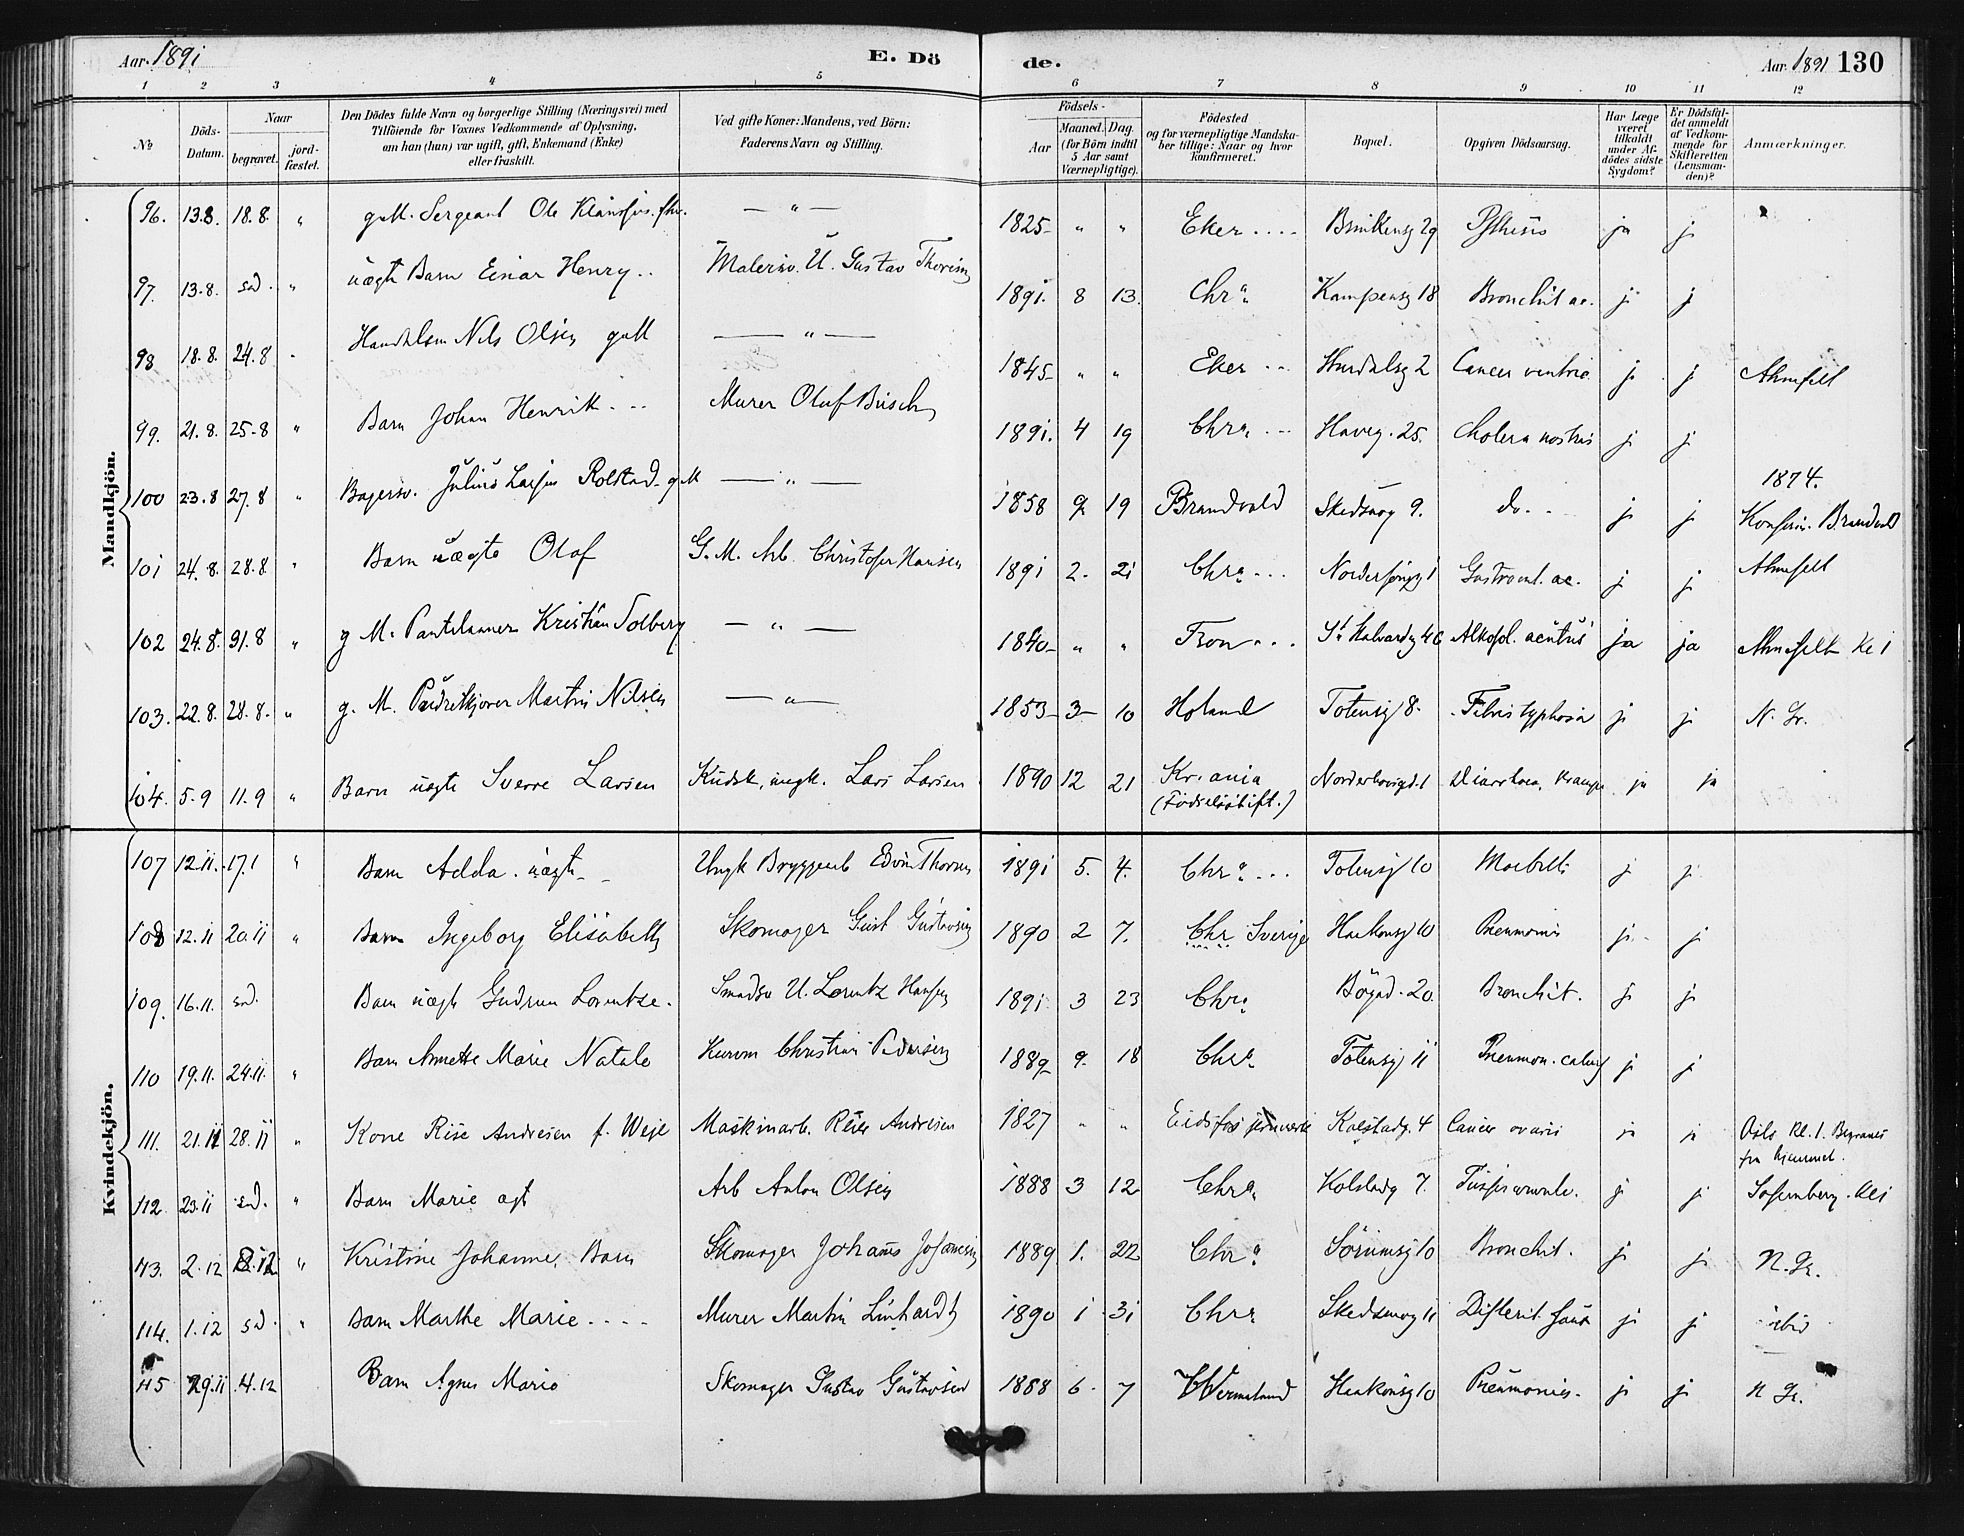 Aar 1891 E. Dö
de. Aar 1891 130
1 2 3 4 5 6 7 8 9 10 11 12
No
Döds-
Datum.
Naar
begravet. jord-
fæstet.
Den Dödes fulde Navn og borgerlige Stilling (Næringsvei) med
Tilföiende for Voxnes Vedkommende af Oplysning,
om han (hun) var ugift, gift, Enkemand (Enke)
eller fraskilt.
Ved gifte Koner: Mandens, ved Börn:
Faderens Navn og Stilling.
Födsels-
Aar
Maaned. Dag.
(for Börn indtil
5 Aar samt
Værnepligtige).
Födested
og for værnepligtige Mandska-
ber tillige: Naar og hvor
konfirmeret.
Bopæl.
Opgiven Dödsaarsag.
Har Læge
været
tilkaldt
under Af-
dödes sidste
Sygdom?
Er Dödsfal-
det anmeldt
af Vedkom-
mende for
Skifteretten
(Lensman-
den)?
Anmærkninger.
Mandkjön.
96. 13.8. 18.8. " Sergeant Ole — " — 1825 " " Eker .... ja j
97. 13.8. sd. " uægte Barn Einar Henry .. U. Gustav 1891. 8 13. Chra Kampensg 18 Bronchit ac. j j
98 18.8. 24.8 Nils Olsen — " — 1845 " " Eker .. Hurdalsg 2 Cancer ventric. j j
99. 21.8. 25.8 " Barn Johan Henrik ... Murer Olaf Busch 1891. 4 19 Chra ... Haveg. 25. Cholera nostras j j
100 23.8 27.8 " Bagersv. Julius Larsen Rolstad — " — 1858 9 19 Brandvold Skedsmog 9. do. .. j j 1874. Konfirm. Brandvold
101 24.8. 28.8 " Barn uægte Olaf G. M. Arb. Christofer Hansen 1891 2. 21 Chra ... Gastroent. ac. j j
102 24.8. 31.8 " g M. Kristian Solberg — " — 1840 " " Tron ... St Halvardsg 46 Alkohol. acutus ja ja
103. 22.8. 28.8. " g. M. Martin Nilsen — " — 1853 3 10 Holand Totensg 8. Febris typhosa j j N. Gr.
104. 5.9 11.9 " Barn uægte Sverre Larsen Kudsk, ungk. Lars Larsen 1890 12 21 Kr.ania (Födselsstift.) Diarrhoea, Krampe ja ja
Kvindekjön.
107 12.11. 17.1 " Barn Adda. uægte Ungk Edvin Thorsen 1891 5. 4. Chra ... Totensg 10 j j
108 12.11 20.11 " Barn Ingeborg Elisabeth Skomager Gust Gustavsen 1890 2 7. Chr Sverige Haakonsg 10 Pneumonie j j
109. 16.11. sd. Barn uægte Gudrun Lorentze. Smedsv U. Lorentz Hansen 1891 3 23 Chra Bögad. 20. Bronchit. j j
110 19.11. 24.11. " Barn Annette Marie Natale Christian Pedersen 1889 9. 18 Chra Totensg 11 Pneumon. j j
111. 21.11 28.11 " Kone Rise Andresen f. Weje Maskinarb. Andresen 1827 " " Kolstadg. 4 Cancer ovarii ja ja Oslo Kl. 1. Begraves fra hjemmet.
112 23.11 sd. " Barn Marie ægt Arb Anton Olsen 1888 3 12 Chra Kolstadg 7. j j Sofienberg. Kl 1
113. 2.12 8.12 " Kristine Johanne, Barn Skomager Johans Johansen 1889 1. 22 Chra Sörumsg 10 Bronchit. j j N. Gr.
114. 1.12 sd. " Barn Marthe Marie .... Murer Martin Linhardt 1890 1 31 Chra Skedsmog 11 j j ibid
115 29.11 4.12 Barn Agnes Marie Skomager Gustav Gustavsen 1888 6. 7 Wermeland Haakonsg 10 Pneumonie. j j N Gr.